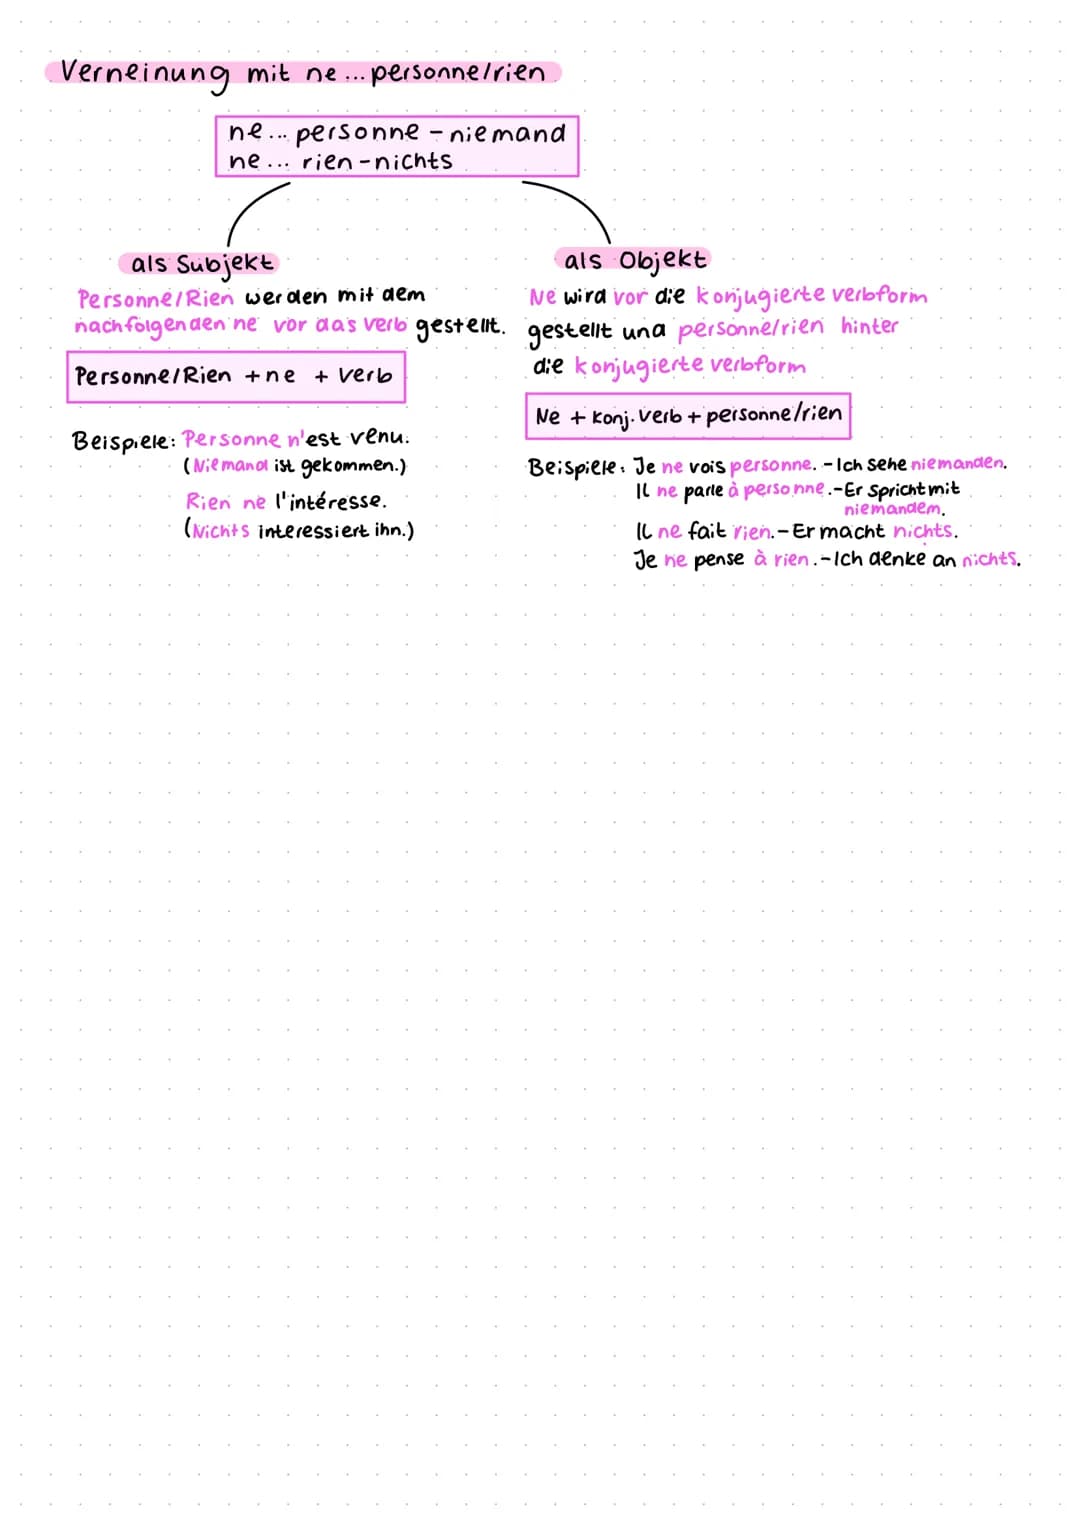 Verneinung mit ne ... personne/rien
ne... personne - niemand
ne... rien - nichts
als Subjekt
Personne/Rien werden mit dem
nachfolgenden ne vor das Verb gestellt.
Personne/Rien + ne + Verb
Beispiele: Personne n'est venu.
(Niemand ist gekommen.)
Rien ne l'intéresse.
(Nichts interessiert ihn.)
als Objekt
Ne wird vor die konjugierte Verbform
gestellt und personne/rien hinter
die konjugierte Verbform
Ne + konj. Verb + personne/rien
Beispiele: Je ne vois personne. - Ich sehe niemanden.
Il ne parle à personne. - Er spricht mit
niemandem.
Il ne fait rien. - Er macht nichts.
Je ne pense à rien. - Ich denke an nichts.